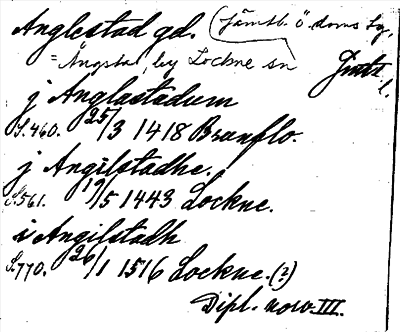 Anglestad gd. (Jämtl. ö. doms by,
= Ångsta, by Lockne sn Jmtl.
j Anglastadum
S. 460. 25/3 1418 Brunflo.
j Angilstadhe.
S. 561. 19/5 1443 Lockne.
i Angilstadh
S. 770. 26/1 1516 Lockne. (?)
Dipl. norv. III.